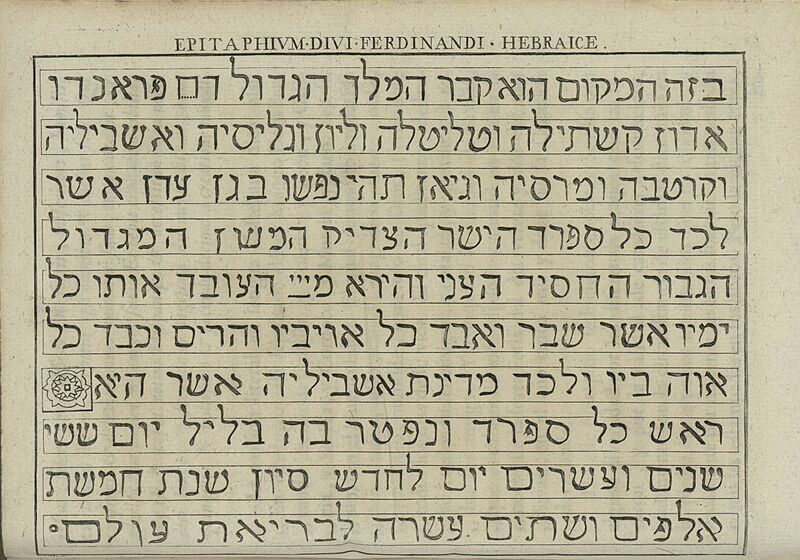 EPITAPHIVM·DIVI·FERDINANDI·HEBRAICE.
בזה המקום הוא קבר המלך הגדול דח פראנדו
אדון קשתילה וטליטלה וליון וגליסיה ואשביליה
וקורטבה ומרסיה וגיאן תהי נפשו בגן עדן אשר
לכד כל ספרד הישר הצדיק המשוז המגדול
הגבור החסיד העני והירא מייי העובד אותו כל
ימיו אשר שבר ואבד כל אויביו והרים וכבד כל
אוה ביו ולכד מדינת אשביליה אשר היא
ראש כל ספרד ונפטר בה בליל יום ששי
שנים ועשרים יום לחדש סיון שנת חמשת
אלפים ושתים עשרה לבריאת עולם